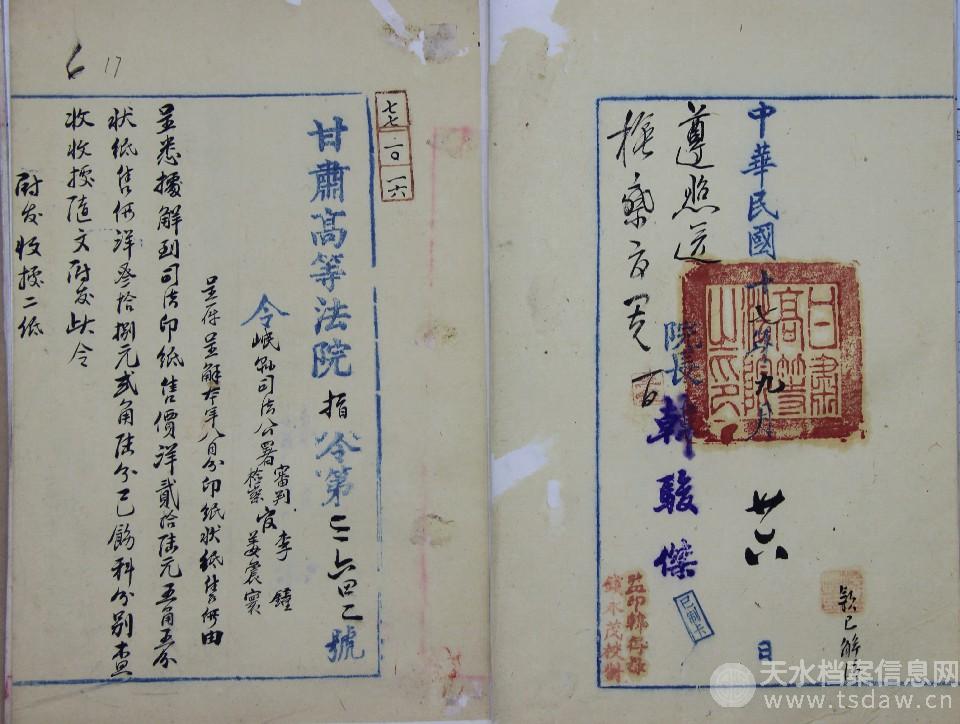 17
七七
二〇
一六
甘肅高等法院指令第二六四二號
令岷縣司法公署審判官李鐘
檢察官姜震寰
呈一件呈解本年八月份印紙狀紙售價由
呈悉據解到司法印紙售價洋貳拾陸元五角五分
狀紙售價洋叄拾捌元貳角陸分已飭科分別查
收收據隨文附發此令
附發收據二紙
中華民國十七年九月廿六日
甘肅高等法院之印
院長韓駿傑
遵照送
檢察官閱
款已解
已制卡
监印韓
校對
天水档案信息网
www.tsdaw.cn